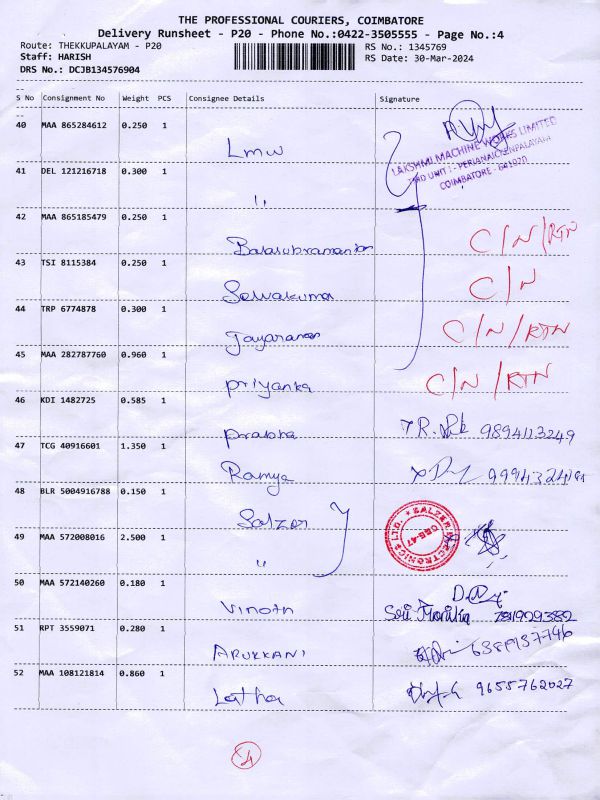 THE PROFESSIONAL COURIERS, COIMBATORE
Delivery Runsheet - P20 - Phone No.:0422-3505555 - Page No.:4
Route: THEKKUPALAYAM - P20 RS No.: 1345769
Staff: HARISH RS Date: 30-Mar-2024
DRS No.: DCJB134576904
S No Consignment No Weight PCS Consignee Details Signature
40 MAA 865284612 0.250 1
Lmw
LAKSHMI MACHINE WORKS LIMITED
COIMBATORE - 641020
41 DEL 121216718 0.300 1
"
42 MAA 865185479 0.250 1
Balasubramanian C/N/RTN
43 TSI 8115384 0.250 1
Selvakumar C/N
44 TRP 6774878 0.300 1
Jayaraman C/N/RTN
45 MAA 282787760 0.960 1
Priyanka C/N/RTN
46 KDI 1482725 0.585 1
Prabha R. 9894113249
47 TCG 40916601 1.350 1
Ramya
48 BLR 5004916788 0.150 1
Salzer
SALZER ELECTRONICS LTD.
49 MAA 572008016 2.500 1
"
50 MAA 572140260 0.180 1
Vinoth
51 RPT 3559071 0.280 1
ARUKKANI
52 MAA 108121814 0.860 1
Latha 9655762027
4